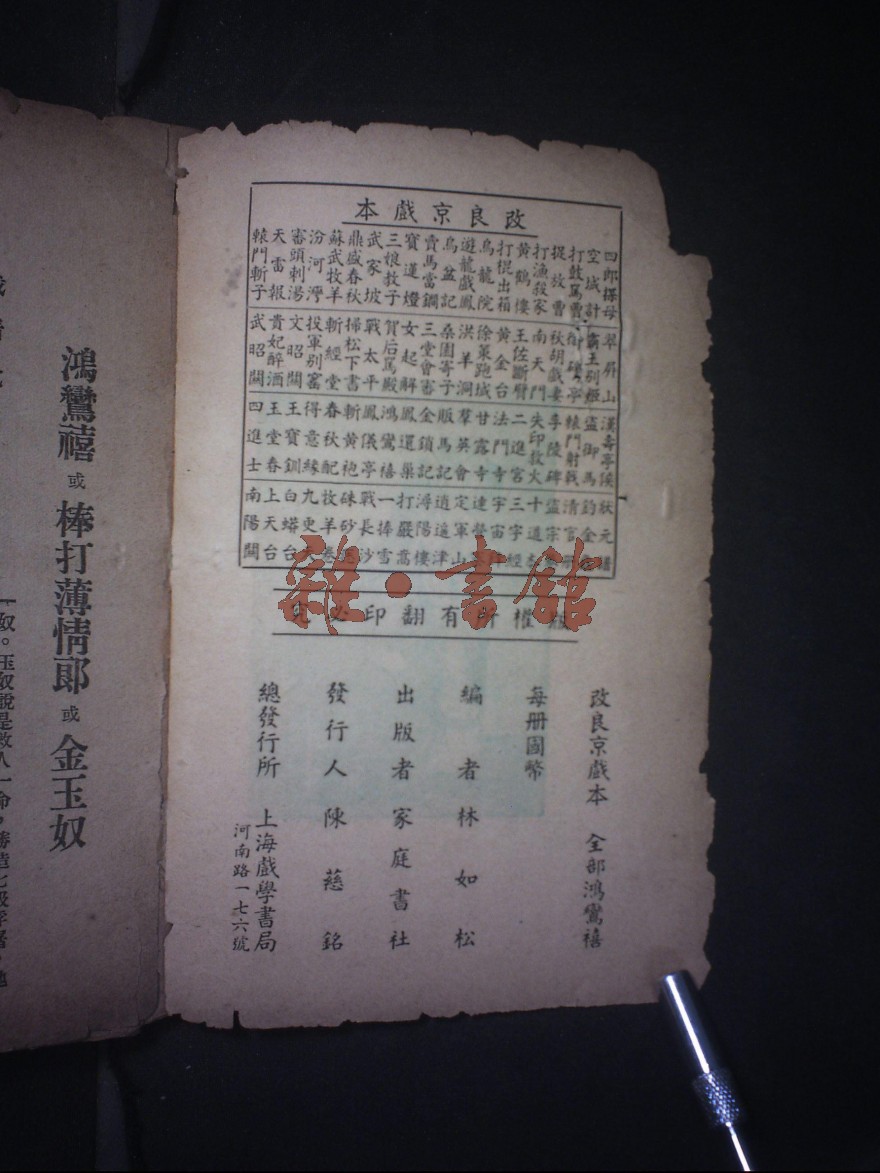 改良京戲本
四郎探母
空城計
打鼓罵曹
捉放曹
打漁殺家
黄鶴樓
打棍出箱
烏龍院
遊龍戲鳳
烏盆記
賣馬當鐧
寶蓮燈
三娘教子
武家坡
鼎盛春秋
蘇武牧羊
汾河灣
審頭刺湯
天雷報
轅門斬子
翠屏山
霸王别姬
御碑亭
秋胡戲妻
南天門
王佐斷臂
黄金台
徐策跑城
洪羊洞
桑園寄子
三堂會審
女起解
賀后罵殿
戰太平
掃松下書
斬經堂
拔軍别窰
文昭關
貴妃醉酒
武昭關
漢壽亭侯
盜御馬
轅門射戟
李陵碑
失印救火
二進宮
法門寺
甘露寺
羣英會
販馬記
金鎖記
鳳還巢
鴻鸞禧
鳳儀亭
斬黄袍
春秋配
得意緣
王寶釧
玉堂春
四進士
狀元譜
釣金龜
清官册
盜宗卷
十道本
三字經
宇宙鋒
連營寨
定軍山
逍遙津
潯陽樓
打嚴嵩
一捧雪
戰長沙
硃砂痣
牧羊卷
九更天
白蟒台
上天台
南陽關
版權所有翻印必究
改良京戲本 全部鴻鸞禧
每册國幣
編者林如松
出版者家庭書社
發行人陳慈銘
總發行所 上海戲學書局
河南路一七六號
雜·書館
鴻鸞禧 或 棒打薄情郎 或 金玉奴
奴。玉奴說是救人一命，勝造七級浮屠，